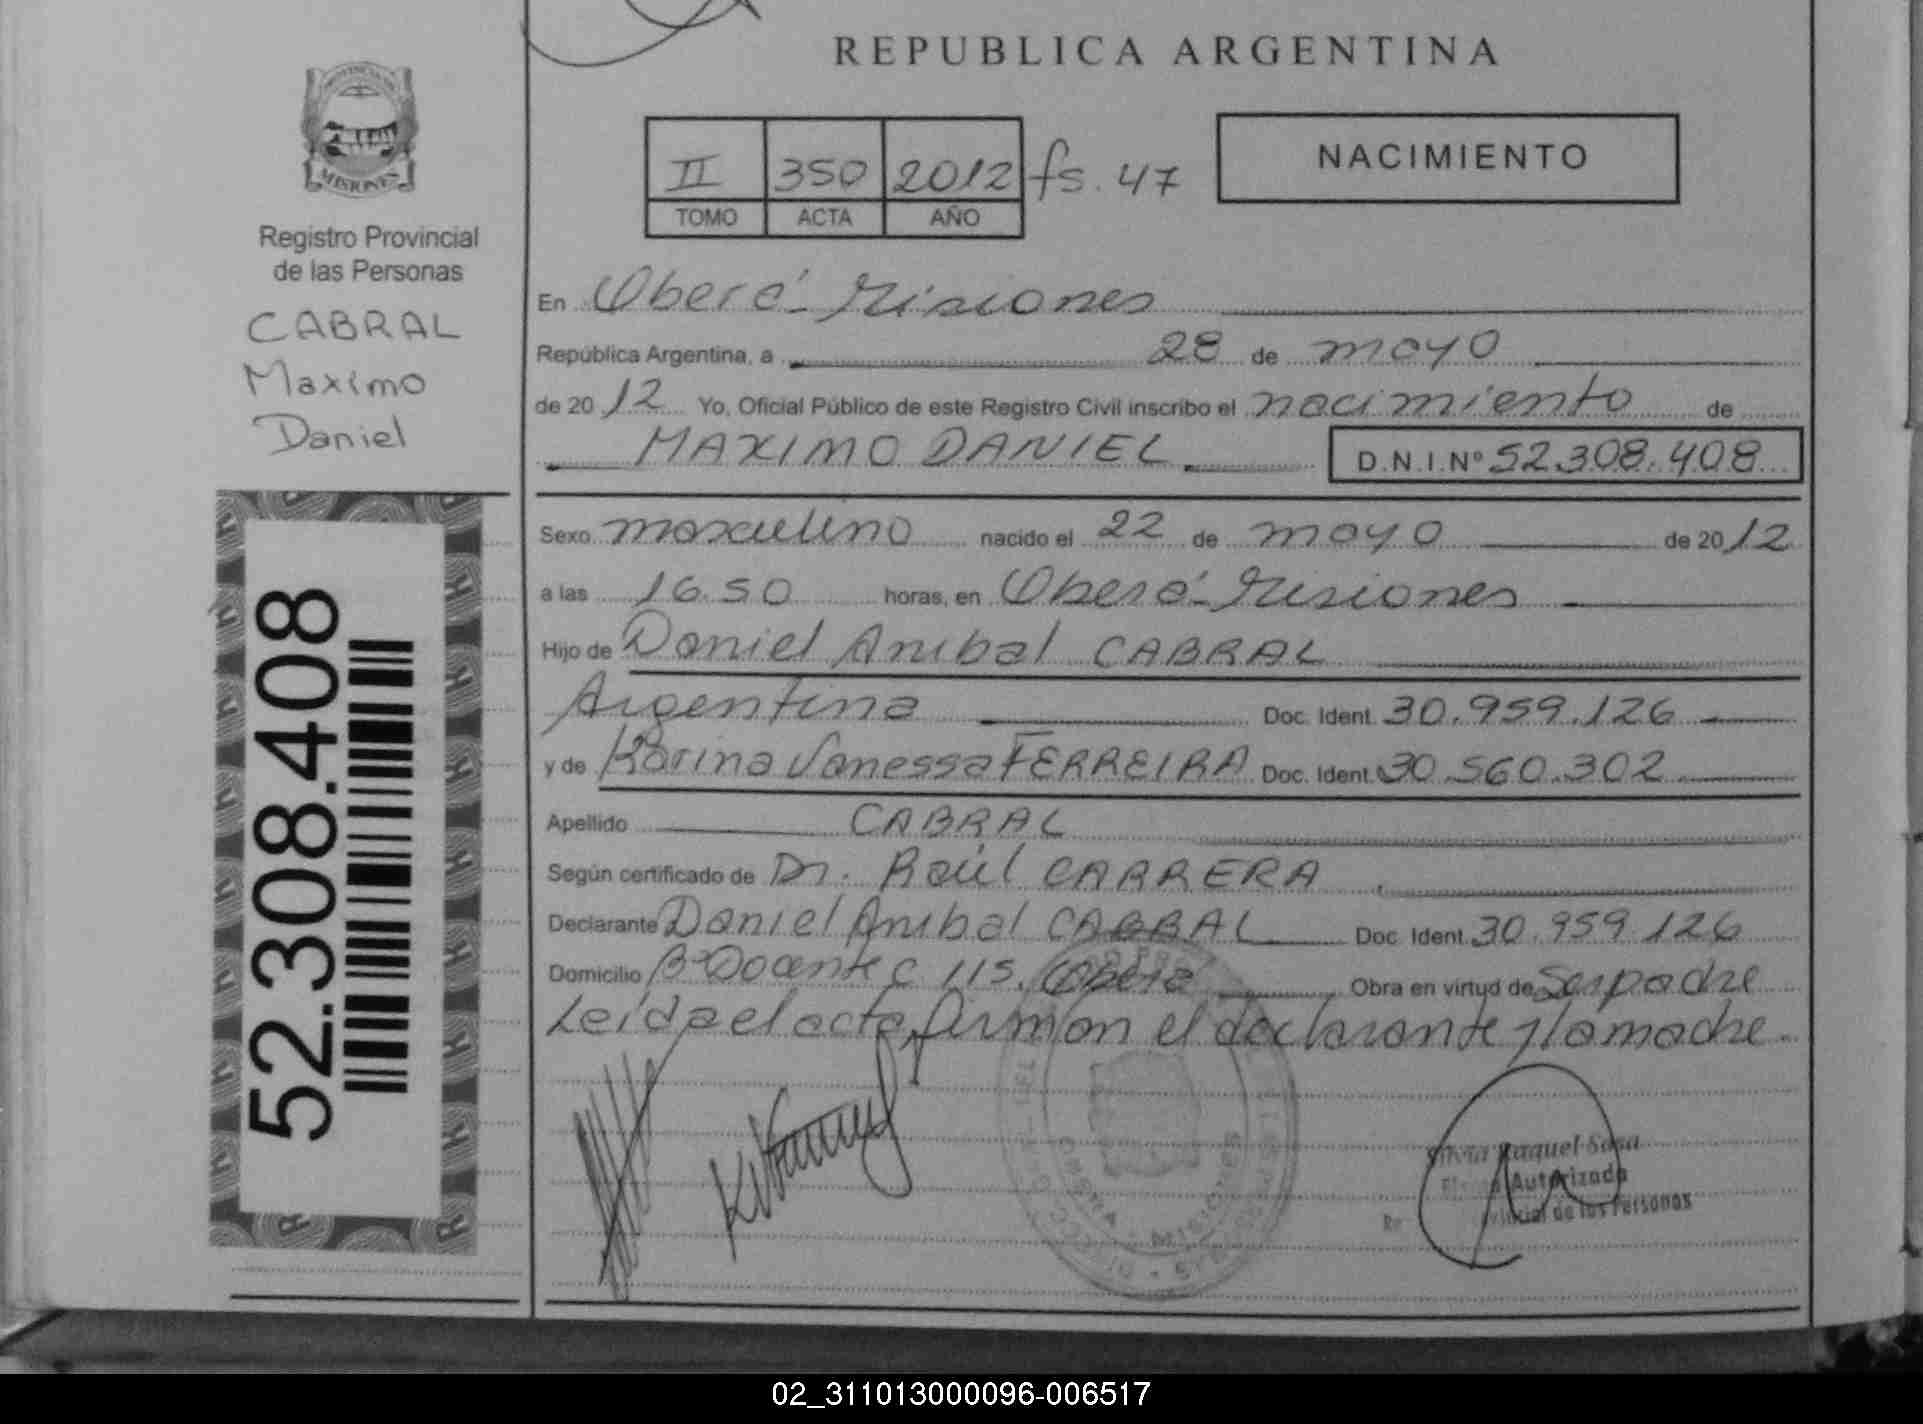 REPUBLICA ARGENTINA
MISIONES
Registro Provincial
de las Personas
CABRAL
Maximo
Daniel
52.308.408
II 350 2012 fs. 47
TOMO ACTA AÑO
NACIMIENTO
En Oberá - Misiones
República Argentina, a 28 de mayo
de 2012 Yo, Oficial Público de este Registro Civil inscribo el nacimiento de
MAXIMO DANIEL D.N.I.Nº 52.308.408
Sexo masculino nacido el 22 de mayo de 2012
a las 16.50 horas, en Oberá - Misiones
Hijo de Daniel Anibal CABRAL
Argentina Doc. Ident. 30.959.126
y de Karina Vanessa FERREIRA Doc. Ident. 30.560.302
Apellido CABRAL
Según certificado de Dr. Raúl CARRERA
Declarante Daniel Anibal CABRAL Doc. Ident. 30.959.126
Domicilio Bº Docente C 115. Oberá Obra en virtud de Ser padre
Leída el acta, firman el declarante y la madre.
Silvia Raquel Sosa
Autorizada
de las Personas
OBERA - MISIONES
02_311013000096-006517